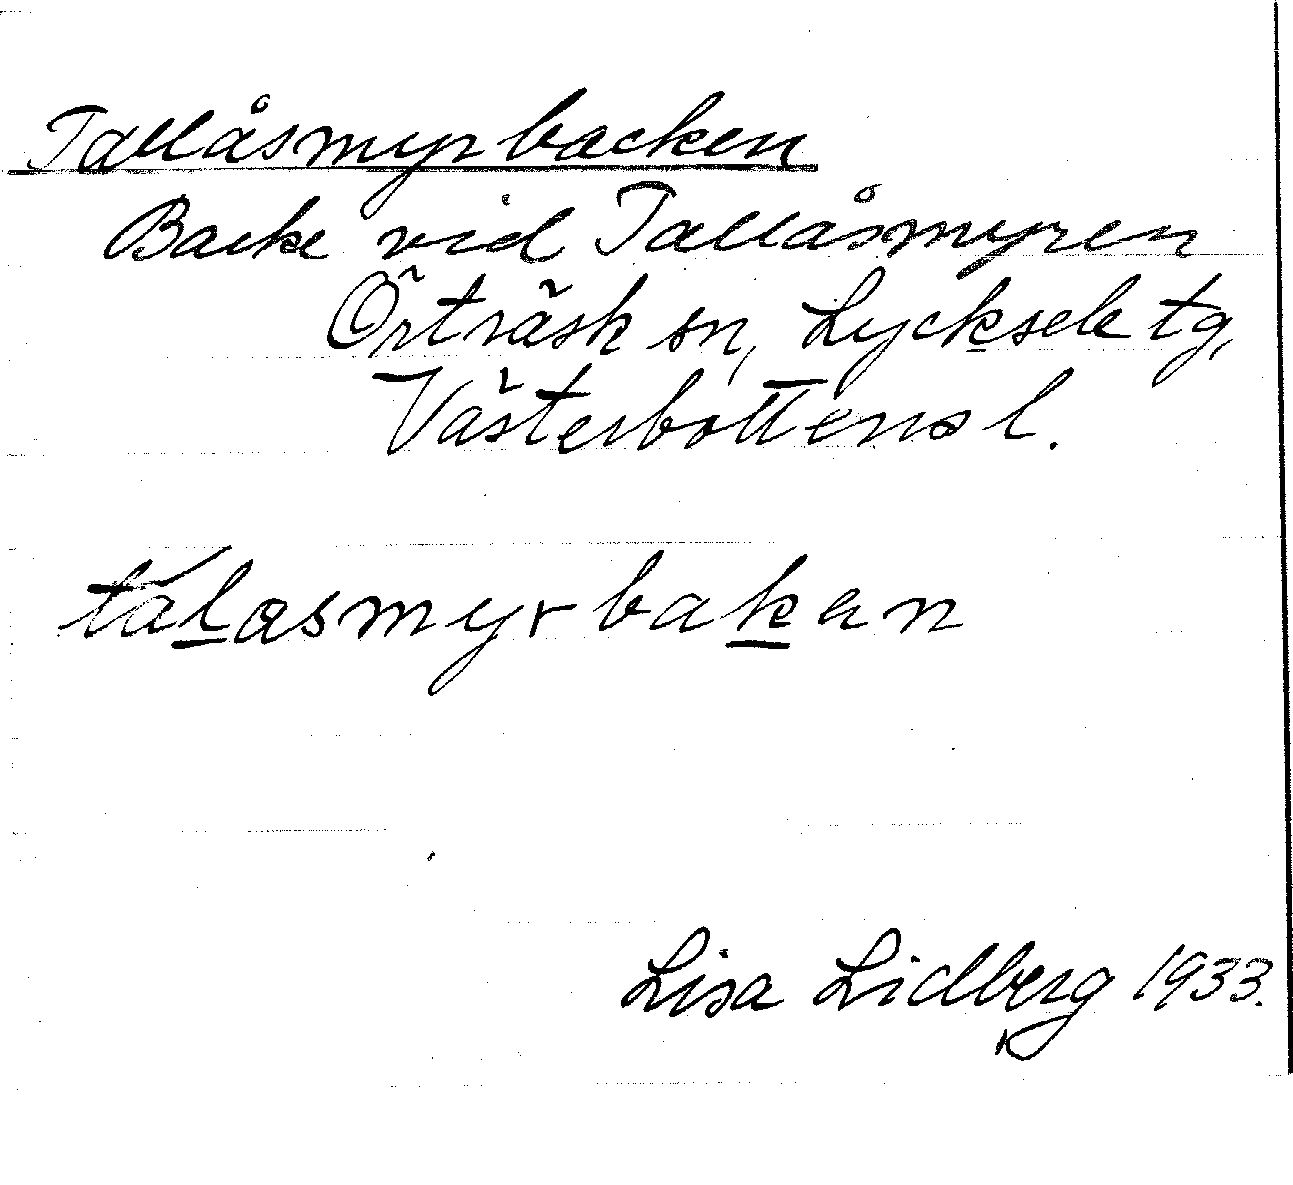 Tallåsmyrbacken
Backe vid Tallåsmyren
Örträsk sn, Lycksele tg,
Västerbottens l.
tálasmyrbakan
Lisa Lidberg 1933.